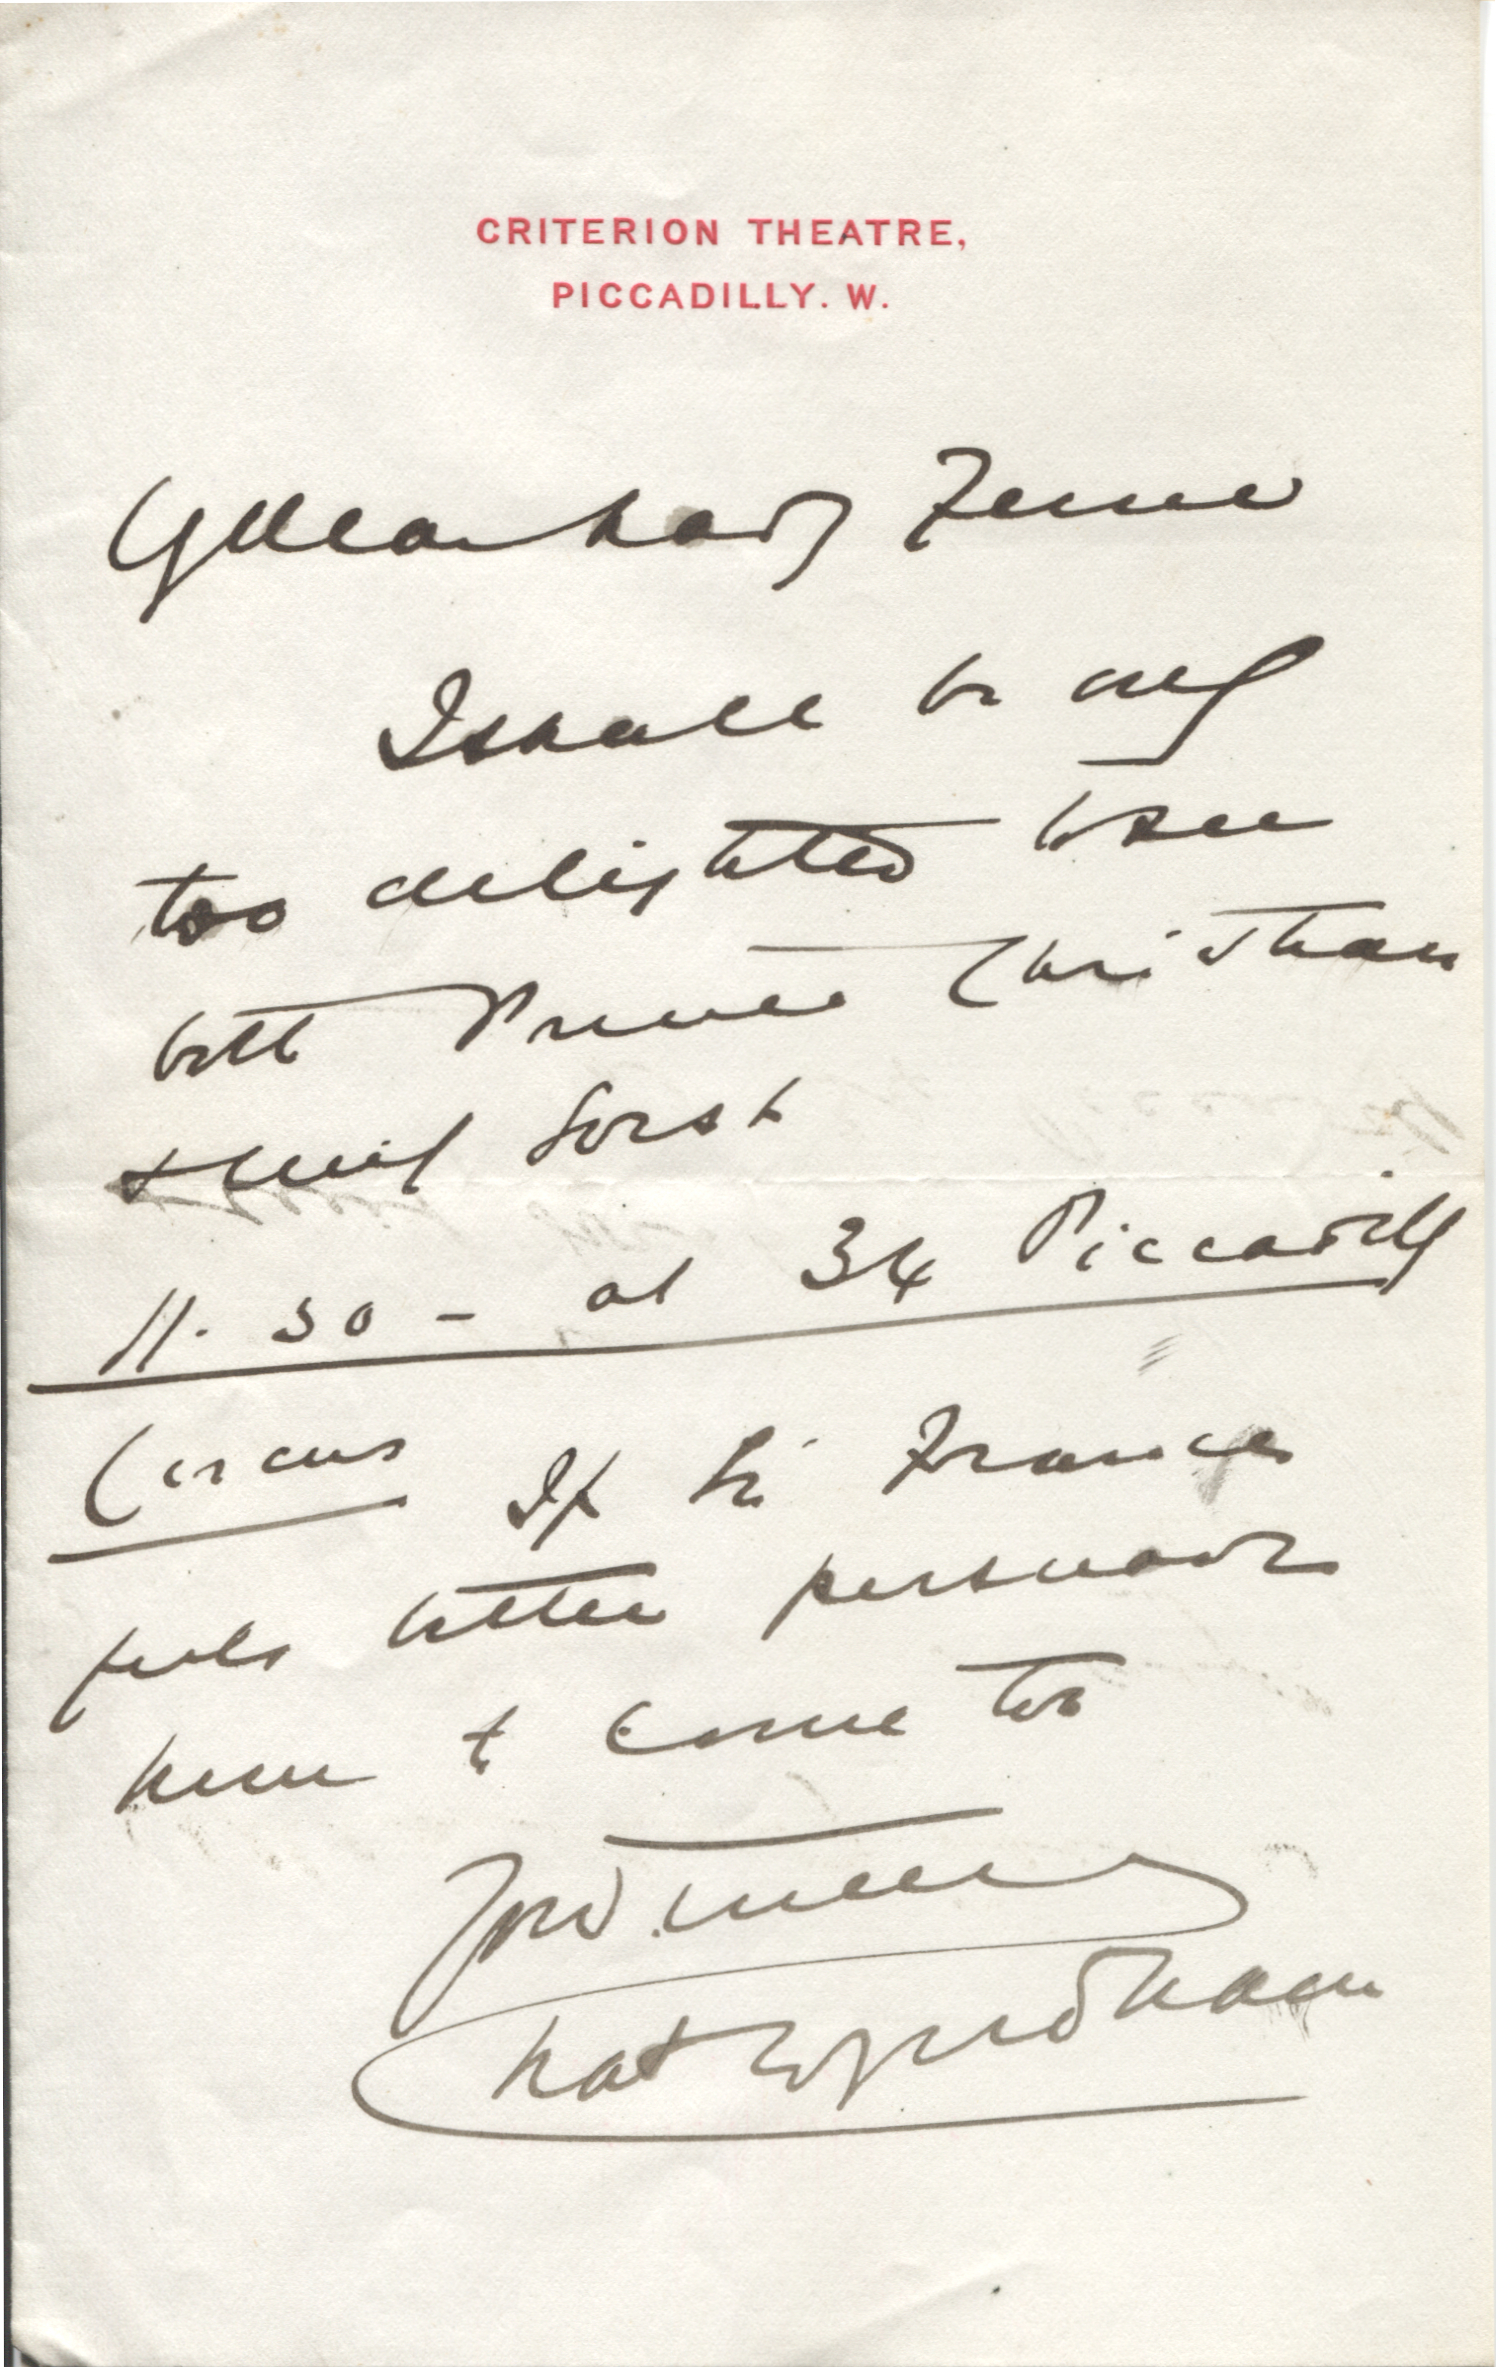 CRITERION THEATRE,
PICCADILLY. W.
My dear Lady Jeune
I shall be only
too delighted to see
both Prince Christian
& Miss
11.30 - at 34 Piccadilly
Circus If Sir Francis
feels better persuade
him to come too
Chas Wyndham